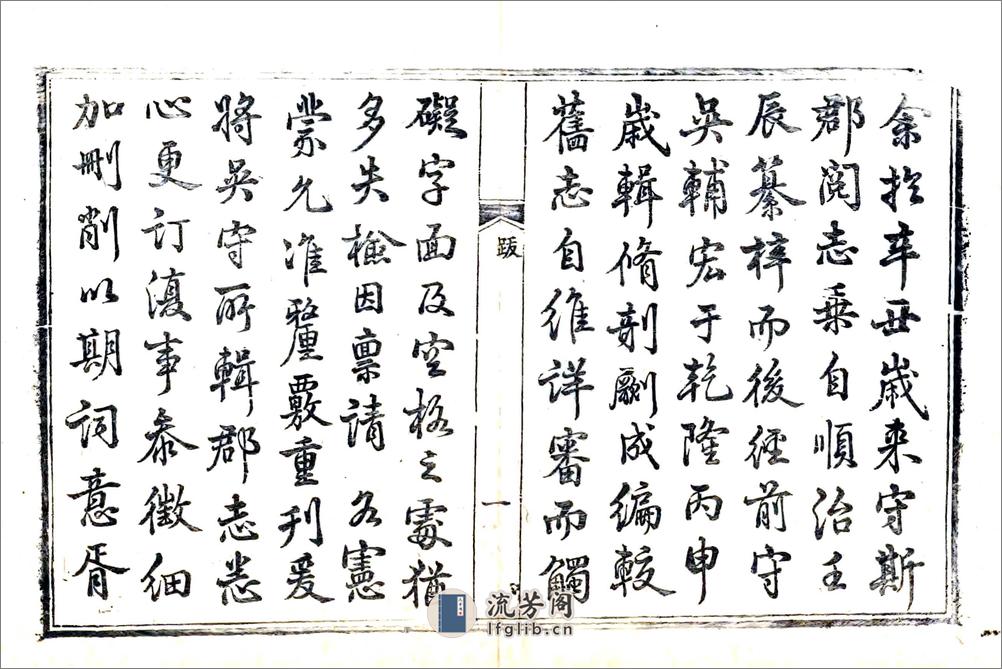 余於辛丑歲来守斯
郡閱志乗自順治壬
辰纂梓而後経前守
吳輔宏于乾隆丙申
歲輯脩剞劂成編較
舊志自維詳審而觸
跋
一
礙字面及空格之處猶
多失檢因禀請 各憲
蒙允准釐覈重刊爰
將吳守所輯郡志悉
心更訂復事叅徵細
加刪削以期詞意胥
流芳阁
lfglib.cn